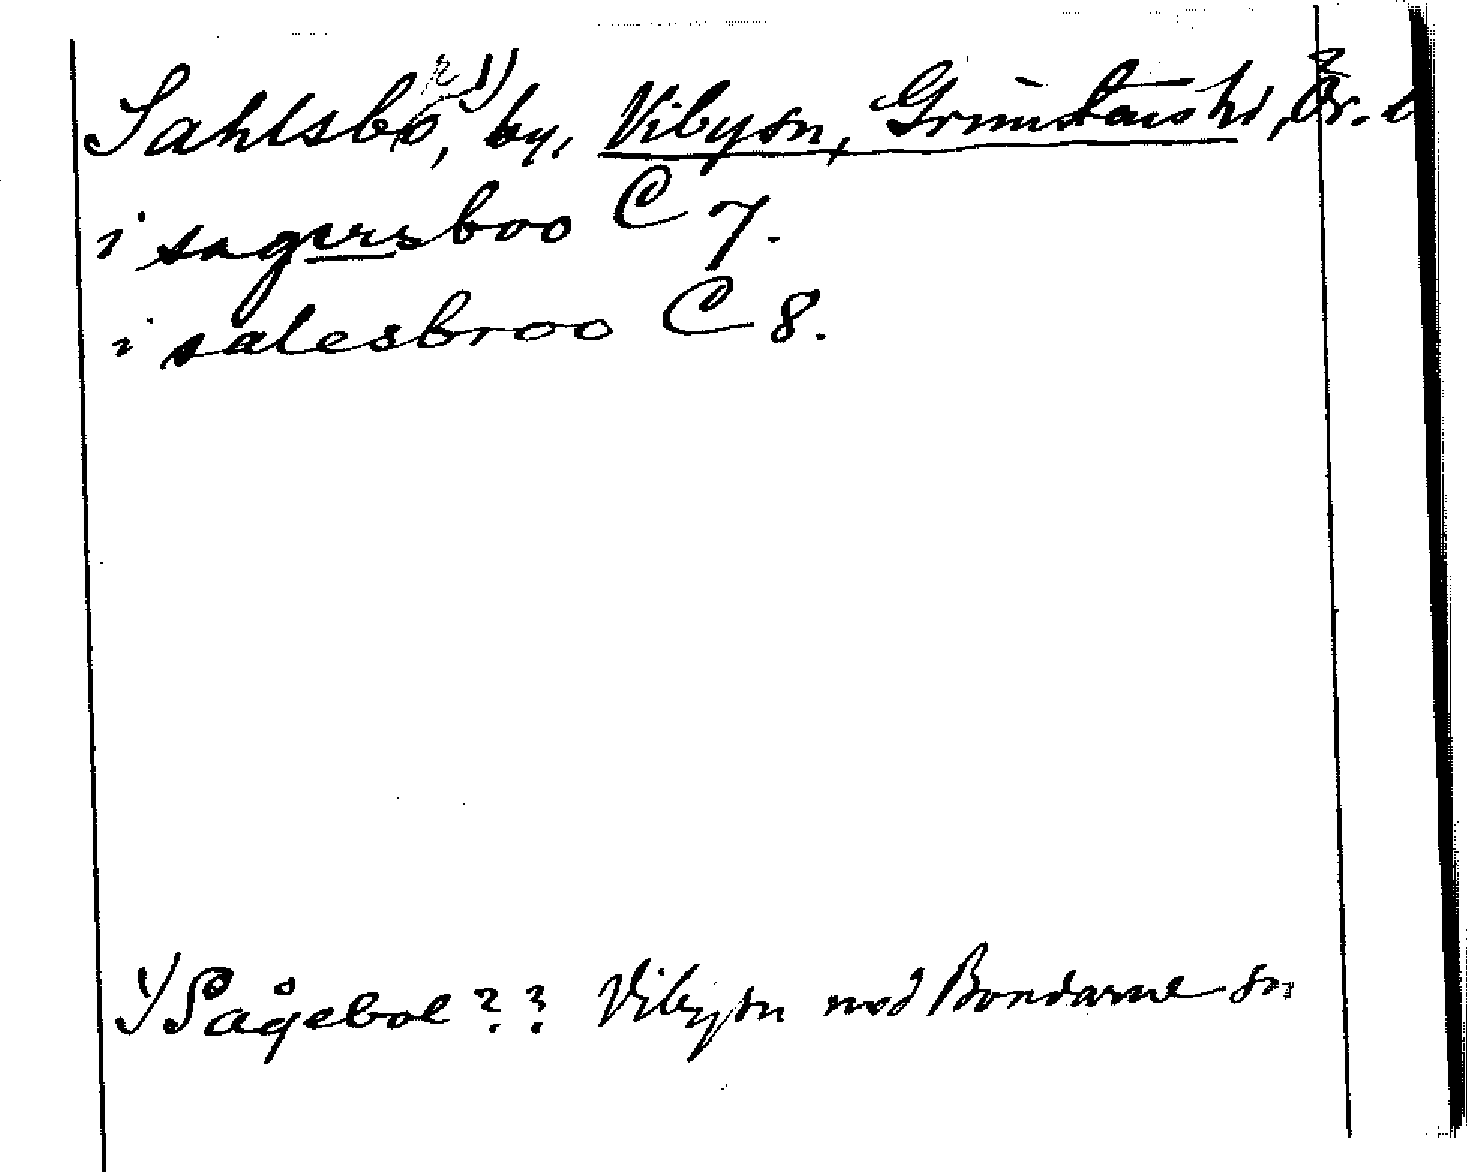 Sahlsbo, 1) by, Viby sn, Grimstens hd, Ör. l
i sagersboo C 7.
i salesbroo C 8.
1) Sågebol?? Viby sn mod Bondarne sn